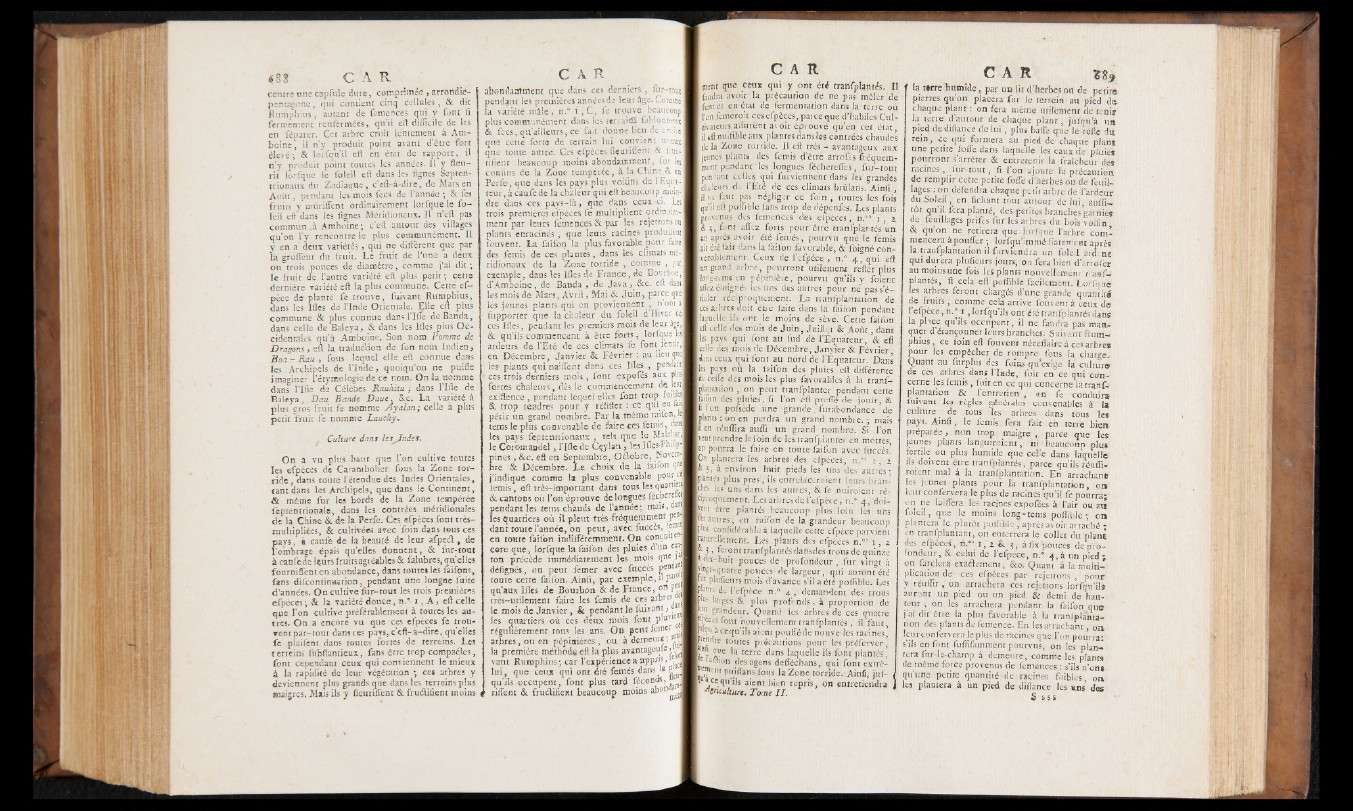 688 C A R
centre une capsule dure, comprimée, arrondie-
pentagone, qui contient cinq cellules, & dit
Rumphius, autant de semences qui y sont si
fermement renfermées, qu'il est difficile de les
en séparer. Cet arbre croît lentement à Am-
boine, il n'y produit point avant d'être fort
élevé; & lorsqu'il est en état de rapport, il
n'y produit point toutes les années. Il y fleu-
rit lorsque le soleil est dans les signes Septen-
trionaux du Zodiaque, c'est-à-dire, de Mars en
Août, pendant les mois secs de l'année; & ses
fruits y mûrissent ordinairement lorsque le so-
leil est dans les signes Méridionaux. Il n'est pas
commun à Amboine; c'est autour des villages
qu'on l'y rencontre le plus communément. Il
y en a deux variétés, qui ne diffèrent que par
la grosseur du fruit. Le fruit de l'une a deux
ou trois pouces de diamètre, comme j'ai dit;
le fruit de l'autre variété est plus petit; cette
dernière variété est la plus commune. Cette es-
pèce de plante se trouve, suivant Rumphius,
dans les Isles de l'Inde Orientale. Elle est plus
commune & plus connue dans l'Isle de Banda,
dans celle de Baleya, & dans les Isles plus Oc-
cidentales qu'à Amboine. Son nom Pomme de
Dragons, est la traduction de son nom Indien,
Boa-Rau, sous lequel elle est connue dans
les Archipels de l'Inde, quoiqu'on ne puisse
imaginer l'étymologie de ce nom. On la nomme
dans l'Isle de Célèbes Rauhitu; dans l'Isle de
Baleya, Dau Bande Daue, &c. La variété à
plus gros fruit se nomme Ayalan; celle à plus
petit fruit se nomme Lauchy.
Culture dans les Indes.
On a vu plus haut que l'on cultive toutes
les espèces de Carambolier sous la Zone tor-
ride, dans toute l'étendue des Indes Orientales,
tant dans les Archipels, que dans le Continent,
& même sur les bords de la Zone tempérée
septentrionale, dans les contrées méridionales
de la Chine & de la Perse. Ces espèces sont très-
multipliées, & cultivées avec soin dans tous ces
pays, à cause de la beauté de leur aspect, de
l'ombrage épais qu'elles donnent, & sur-tout
à cause de leurs fruits agréables & salubres, qu'elles
fournissent en abondance, dans toutes les saisons,
sans discontinuation, pendant une longue suite
d'années. On cultive sur-tout les trois premières
espèces; & la variété douce, n.° 1, A, est celle
que l'on cultive préférablement à toutes les au-
tres. On a encore vu que ces espèces se trou-
vent par-tout dans ces pays, c'est-à-dire, qu'elles
se plaisent dans toutes sortes de terreins. Les
terreins substantieux, sans être trop compactes,
sont cependant ceux qui conviennent le mieux
à la rapidité de leur végétation; ces arbres y
deviennent plus grands que dans les terreins plus
maigres. Mais ils y fleurissent & fructifient moins
C A R
abondamment que dans ces derniers, sur-tout
pendant les premières années de leur âge.
la variété mâle, n.° 1, C, se trouve beaucoup
plus communément dans les terreins sablonneux
& secs, qu'ailleurs, ce fait donne lieu de croire
que cette sorte de terrein lui convient mieux
que toute autre. Ces espèces fleurissent & fruc-
tifient beaucoup moins abondamment, sur les
confins de la Zone tempérée, à la Chine & en
Perse, que dans les pays plus voisins de l'Equa-
teur, à cause de la chaleur qui est beaucoup moin-
dre dans ces pays-là, que dans ceux-ci. Les
trois premières espèces se multiplient ordinaire-
ment par leurs semences & par les rejettons ou
plants enracinés, que leurs racines produisent
souvent. La saison la plus favorable pour faire
des semis de ces plantes, dans les climats mé-
ridionaux de la Zone torride, comme, par
exemple, dans les Isles de France, de Bourbon,
d'Amboine, de Banda, de Java, &c. est dans
les mois de Mars, Avril, Mai & Juin, parce que
les jeunes plants qui en proviennent, n'ont à
supporter que la chaleur du soleil d'Hiver de
ces Isles, pendant les premiers mois de leur âge,
& qu'ils commencent à être forts, lorsque les
ardeurs de l'Eté de ces climats se font sentir,
en Décembre, Janvier & Février: au lieu que
les plants qui naissent dans ces Isles, pendant
ces trois derniers mois, sont exposés aux plus
fortes chaleurs, dès le commencement de leur
existence, pendant lequel elles sont trop foibles
& trop tendres pour y résister: ce qui en fait
périr un grand nombre. Par la même raison, le
tems le plus convenable de faire ces semis, dans
les pays septentrionaux, tels que le Malabar,
le Coromandel, l'Isle de Ceylan, les Isles Philip-
pines, &c. est en Septembre, Octobre, Novem-
bre & Décembre. Le choix de la saison que
j'indique comme la plus convenable pour ce
semis, est très-important dans tous les quartiers
& cantons où l'on éprouve de longues sécheresses
pendant les tems chauds de l'année; mais, dans
les quartiers où il pleut très-fréquemment pen-
dant toute l'année, on peut, avec succès, semer
en toute saison indifféremment. On conçoit en-
core que, lorsque la saison des pluies d'un can-
ton précède immédiatement les mois que j'ai
désignés, on peut semer avec succès pendant
toute cette saison. Ainsi, par exemple, il paroît
qu'aux Isles de Bourbon & de France, on peut
très-utilement faire les semis de ces arbres dès
le mois de Janvier, & pendant le suivant, dans
les quartiers où ces deux mois sont pluvieux
régulièrement tous les ans. On peut semer ces
arbres, ou en pépinières, ou à demeure:
la première méthode est la plus avantageuse, sui-
vant Rumphius; car l'expérience a appris, selon
lui, que ceux qui ont été semés dans la place
qu'ils occupent, sont plus tard féconds, fleu-
rissent & fructifient beaucoup moins abondam-
ment
C A R
ment que ceux qui y ont été transplantés. Il
faudra avoir la précaution de ne pas mêler de
fumier en état de fermentation dans la terre où
l'on semeroit ces espèces, parce que d'habiles Cul-
tivateurs assurent avoir éprouvé qu'en cet état,
il est nuisible aux plantes dans les contrées chaudes
de la Zone torride. Il est très-avantageux aux
jeunes plants des semis d'être arrosés fréquem-
ment pendant les longues sécheresses, sur-tout
pendant celles qui surviennent dans les grandes
chaleurs de l'Eté de ces climats brûlans. Ainsi,
il ne faut pas négliger ce soin, toutes les fois
qu'il est possible sans trop de dépenses. Les plants
provenus des semences des espèces, n.os 1, 2
& 3, sont assez forts pour être transplantés un
an après avoir été semés, pourvu que le semis
ait été fait dans la saison favorable, & soigné con-
venablement. Ceux de l'espèce, n.° 4, qui est
un grand arbre, pourront utilement rester plus
long-tems en pépinière, pourvu qu'ils y soient
assez éloignés les uns des autres pour ne pas s'é-
tioler réciproquement. La transplantation de
ces arbres doit être faite dans la saison pendant
laquelle ils ont le moins de sève. Cette saison
est celle des mois de Juin, Juillet & Août, dans
les pays qui sont au sud de l'Equateur, & est
celle des mois de Décembre, Janvier & Février,
dans ceux qui sont au nord de l'Equateur. Dans
les pays où la saison des pluies est différente
de celle des mois les plus favorables à la trans-
plantation, on peut transplanter pendant cette
saison des pluies, si l'on est pressé de jouir, &
si l'on possède une grande surabondance de
plants: on en perdra un grand nombre; mais
il en réussira aussi un grand nombre. Si l'on
veut prendre le soin de les transplanter en mottes,
on pourra le faire en toute saison avec succès.
On plantera les arbres des espèces, n.os 1, 2
& 3, à environ huit pieds les uns des autres;
plantés plus près, ils entrelaceroient leurs bran-
ches les uns dans les autres, & se nuiroient ré-
ciproquement. Les arbres de l'espèce, n.° 4, doi-
vent être plantés beaucoup plus loin les uns
des autres, en raison de la grandeur beaucoup
plus considérable à laquelle cette espèce parvient
naturellement. Les plants des espèces n.os 1, 2
& 3, seront transplantés dans des trous de quinze
à dix-huit pouces de profondeur, sur vingt à
vingt-quatre pouces de largeur, qui auront été
faits plusieurs mois d'avance s'il a été possible. Les
plants de l'espèce n.° 4, demandent des trous
plus larges & plus profonds, à proportion de
leur grandeur. Quand les arbres de ces quatre
espèces sont nouvellement transplantés, il faut,
jusqu'à ce qu'ils aient poussé de nouvelles racines,
prendre toutes précautions pour les préserver,
ainsi que la terre dans laquelle ils sont plantés,
de l'action des agens desséchans, qui sont extrê-
mement puissans sous la Zone torride. Ainsi, jus-
qu'à ce qu'ils aient bien repris, on entretiendra
Agriculture. Tome II.
C A R 689
la terre humide, par un lit d'herbes ou de petites
pierres qu'on placera sur le terrein au pied de
chaque plant: on fera même utilement de tenir
la terre d'autour de chaque plant, jusqu'à un
pied de distance de lui, plus basse que le reste du
terrein, ce qui formera au pied de chaque plant
une petite fosse dans laquelle les eaux de pluies
pourront s'arrêter & entretenir la fraîcheur des
racines, sur-tout, si l'on ajoute la précaution
de remplir cette petite fosse d'herbes ou de feuil-
lages: on défendra chaque petit arbre de l'ardeur
du Soleil, en fichant tout autour de lui, aussi-
tôt qu'il sera planté, des petites branches garnies
de feuillages prises sur les arbres du bois voisin,
& qu'on ne retirera que lorsque l'arbre com-
mencera à pousser; lorsqu'immédiatement après
la transplantation il surviendra un soleil ardent
qui durera plusieurs jours, on fera bien d'arroser
au moins une fois les plants nouvellement trans-
plantés, si cela est possible facilement. Lorsque
les arbres seront chargés d'une grande quantité
de fruits, comme cela arrive souvent à ceux de
l'espèce, n.° 1, lorsqu'ils ont été transplantés dans
la place qu'ils occupent, il ne faudra pas man-
quer d'étançonner leurs branches. Suivant Rum-
phius, ce soin est souvent nécessaire à ces arbres
pour les empêcher de rompre sous la charge.
Quant au surplus des soins qu'exige la culture
de ces arbres dans l'Inde, soit en ce qui con-
cerne les semis, soit en ce qui concerne la trans-
plantation & l'entretien, on se conduira
suivant les règles générales convenables à la
culture de tous les arbres dans tous les
pays. Ainsi, le semis sera fait en terre bien
préparée, non trop maigre, parce que les
jeunes plants languiroient, ni beaucoup plus
fertile ou plus humide que celle dans laquelle
ils doivent être transplantés, parce qu'ils réussi-
roient mal à la transplantation. En arrachant
les jeunes plants pour la transplantation, on
leur conservera le plus de racines qu'il se pourra;
on ne laissera les racines exposées à l'air ou au
soleil, que le moins long-tems possible; on
plantera le plutôt possible, après avoir arraché;
en transplantant, on enterrera le collet du plant
des espèces, n.os 1, 2 & 3, à six pouces de pro-
fondeur, & celui de l'espèce, n.° 4, à un pied;
on sarclera exactement, &c. Quant à la multi-
plication de ces espèces par rejettons, pour
y réussir, on arrachera ces rejettons lorsqu'ils
auront un pied ou un pied & demi de hau-
teur, on les arrachera pendant la saison que
j'ai dit être la plus favorable à la transplanta-
tion des plants de semence. En les arrachant, on
leur conservera le plus de racines que l'on pourra:
s'ils en sont suffisamment pourvus, on les plan-
tera sur-le-champ à demeure, comme les plants
de même force provenus de semences: s'ils n'ont
qu'une petite quantité de racines foibles, on
les plantera à un pied de distance les uns des
S sss